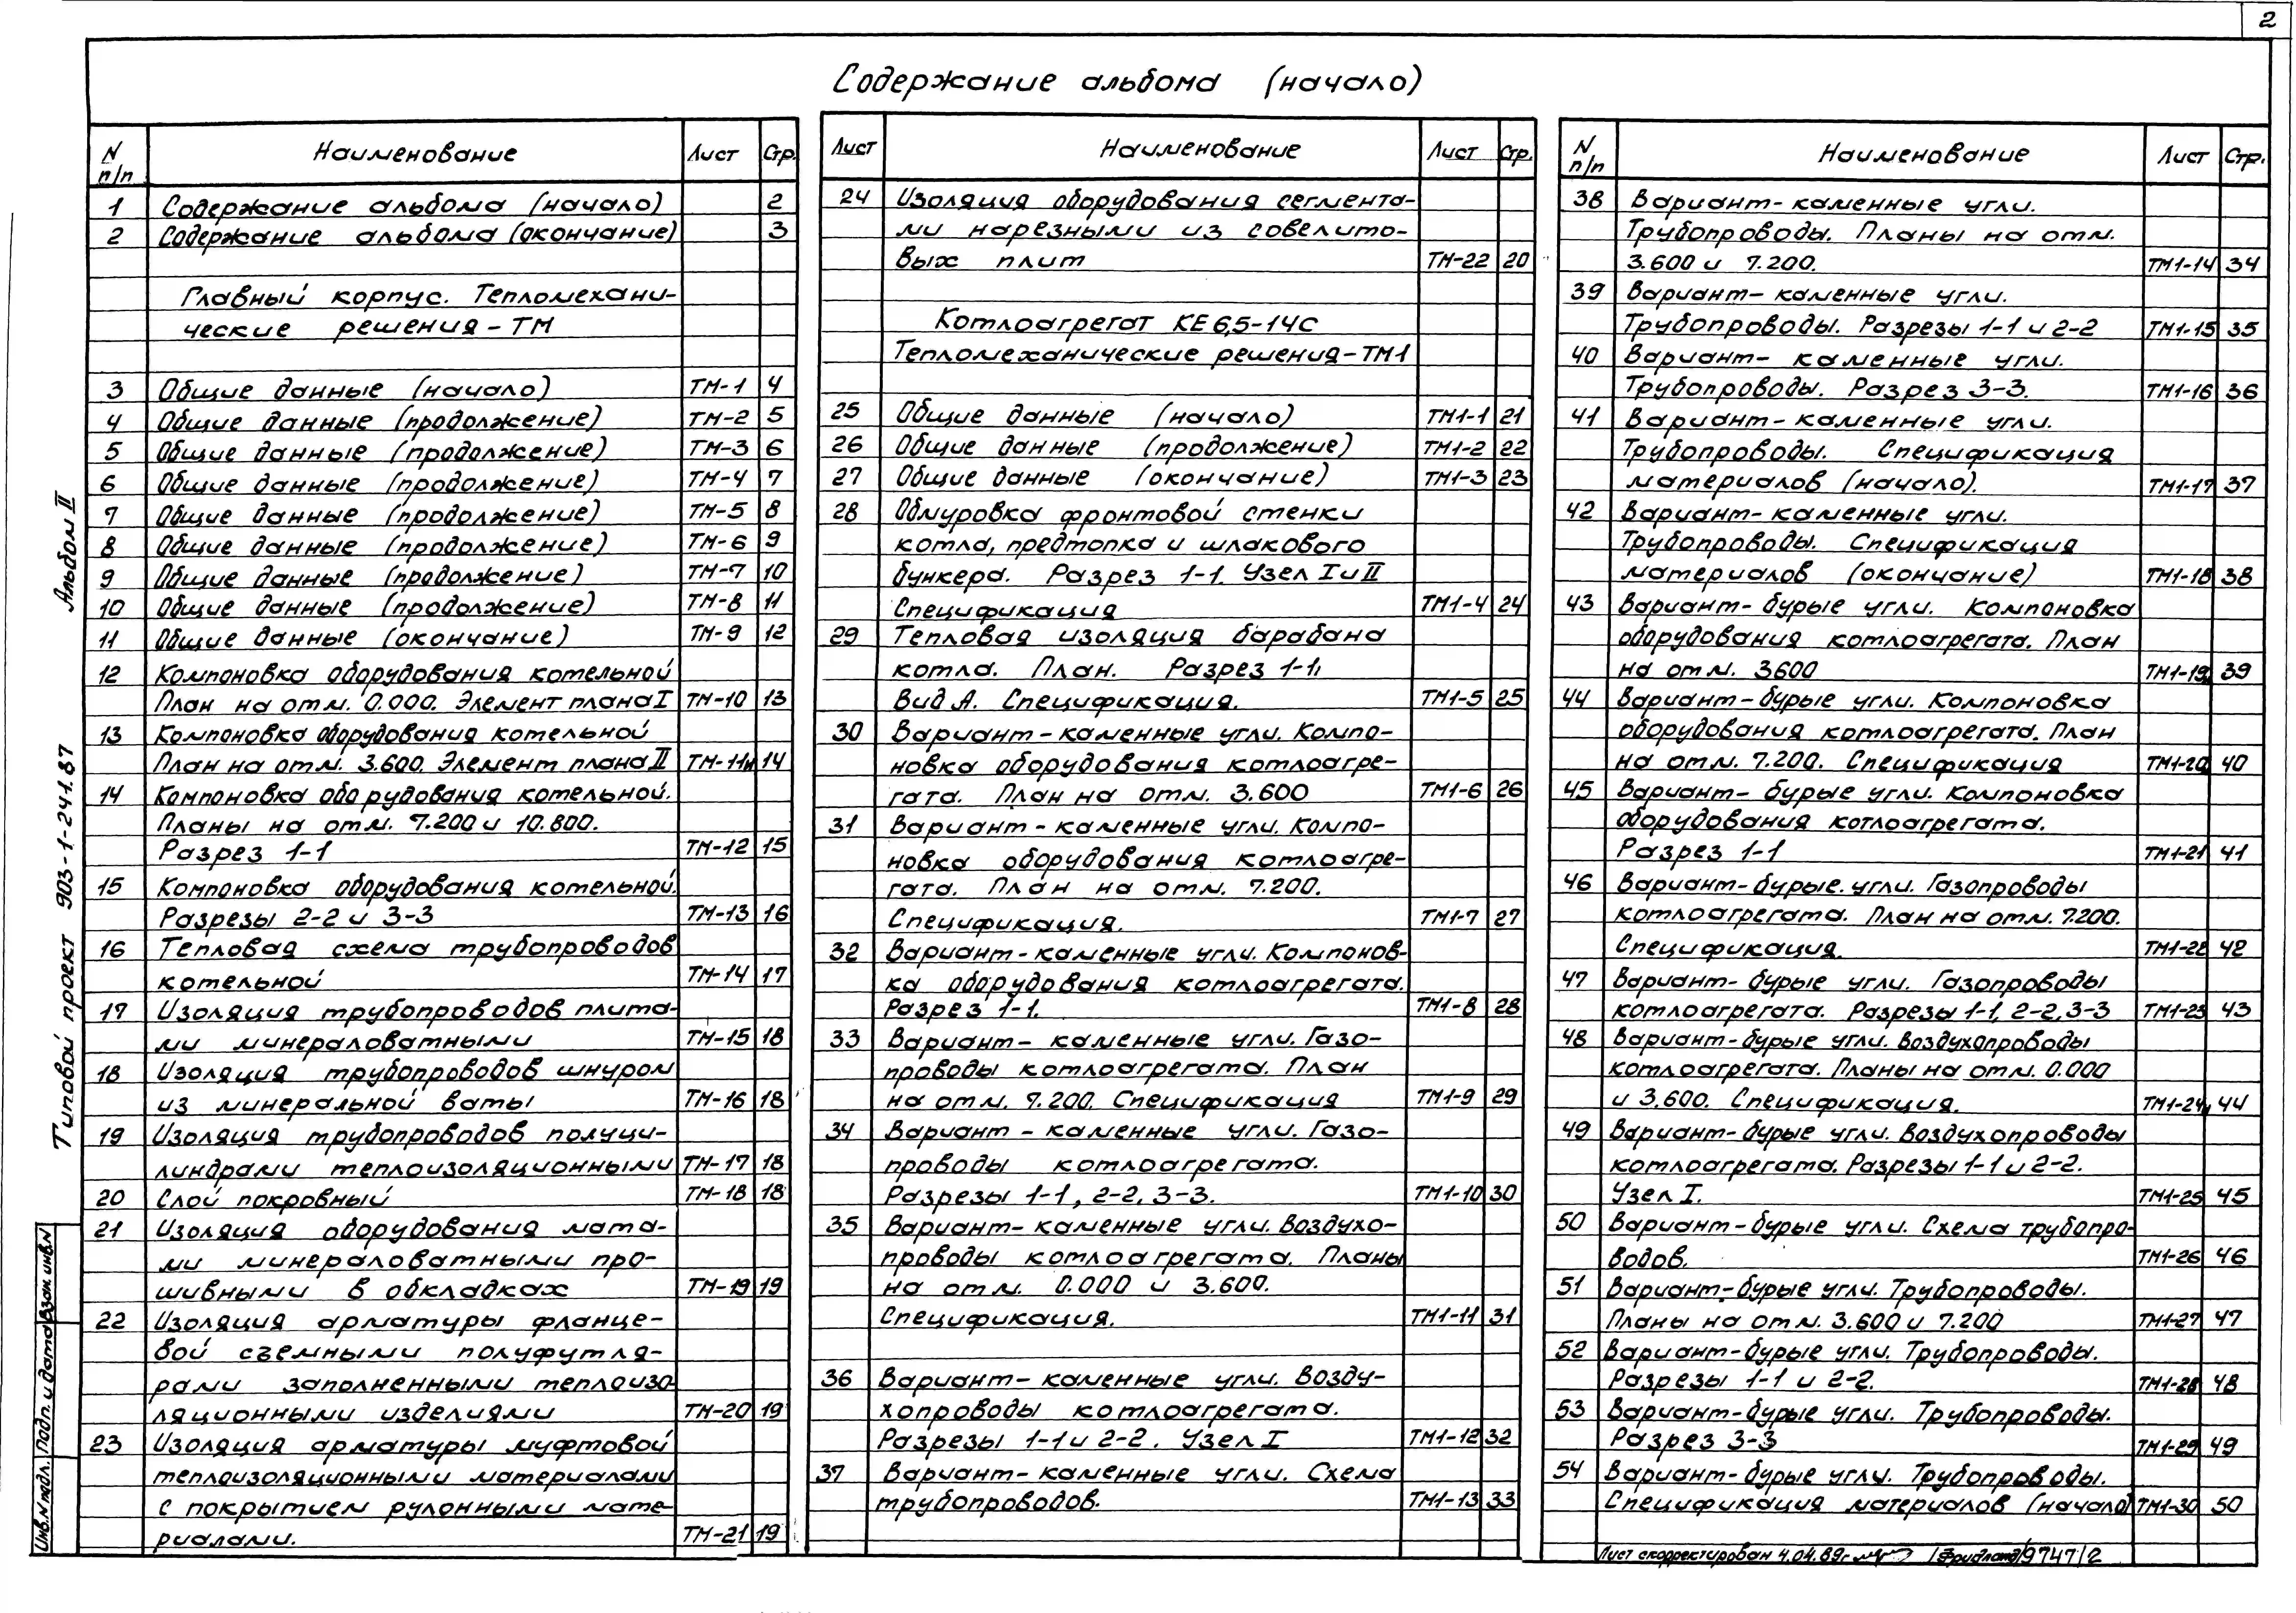 2
Содержание альбома (начало)
N п/п Наименование Лист Стр.
1 Содержание альбома (начало) 2
2 Содержание альбома (окончание) 3
Главный корпус. Тепломехани-
ческие решения-ТМ
3 Общие данные (начало) ТМ-1 4
4 Общие данные (продолжение) ТМ-2 5
5 Общие данные (продолжение) ТМ-3 6
6 Общие данные (продолжение) ТМ-4 7
7 Общие данные (продолжение) ТМ-5 8
8 Общие данные (продолжение) ТМ-6 9
9 Общие данные (продолжение) ТМ-7 10
10 Общие данные (продолжение) ТМ-8 11
11 Общие данные (окончание) ТМ-9 12
12 Компоновка оборудования котельной
План на отм. 0.000. Элемент плана I ТМ-10 13
13 Компоновка оборудования котельной
План на отм. 3.600. Элемент плана II ТМ-11и 14
14 Компоновка оборудования котельной.
Планы на отм. 7.200 и 10.800.
Разрез 1-1 ТМ-12 15
15 Компоновка оборудования котельной.
Разрезы 2-2 и 3-3 ТМ-13 16
16 Тепловая схема трубопроводов
котельной ТМ-14 17
17 Изоляция трубопроводов плита-
ми минераловатными ТМ-15 18
18 Изоляция трубопроводов шнуром
из минеральной ваты ТМ-16 18
19 Изоляция трубопроводов полуци-
линдрами теплоизоляционными ТМ-17 18
20 Слой покровный ТМ-18 18
21 Изоляция оборудования мата-
ми минераловатными про-
шивными в обкладках ТМ-19 19
22 Изоляция арматуры фланце-
вой съемными полуфутля-
рами заполненными теплоизо-
ляционными изделиями ТМ-20 19
23 Изоляция арматуры муфтовой
теплоизоляционными материалами
с покрытием рулонными мате-
риалами. ТМ-21 19
Лист Наименование Лист Стр.
24 Изоляция оборудования сегмента-
ми нарезными из совелито-
вых плит ТМ-22 20
Котлоагрегат КЕ6,5-14С
Тепломеханические решения-ТМ1
25 Общие данные (начало) ТМ1-1 21
26 Общие данные (продолжение) ТМ1-2 22
27 Общие данные (окончание) ТМ1-3 23
28 Обмуровка фронтовой стенки
котла, предтопка и шлакового
бункера. Разрез 1-1. Узел I и II
Спецификация ТМ1-4 24
29 Тепловая изоляция барабана
котла. План. Разрез 1-1,
Вид А. Спецификация. ТМ1-5 25
30 Вариант-каменные угли. Компо-
новка оборудования котлоагре-
гата. План на отм. 3.600 ТМ1-6 26
31 Вариант-каменные угли. Компо-
новка оборудования котлоагре-
гата. План на отм. 7.200.
Спецификация. ТМ1-7 27
32 Вариант-каменные угли. Компонов-
ка оборудования котлоагрегата.
Разрез 1-1. ТМ1-8 28
33 Вариант- каменные угли. Газо-
проводы котлоагрегата. План
на отм. 7.200. Спецификация ТМ1-9 29
34 Вариант - каменные угли. Газо-
проводы котлоагрегата.
Разрезы 1-1, 2-2, 3-3. ТМ1-10 30
35 Вариант-каменные угли. Воздухо-
проводы котлоагрегата. Планы
на отм. 0.000 и 3.600.
Спецификация. ТМ1-11 31
36 Вариант-каменные угли. Возду-
хопроводы котлоагрегата.
Разрезы 1-1 и 2-2. Узел I ТМ1-12 32
37 Вариант-каменные угли. Схема
трубопроводов. ТМ1-13 33
N п/п Наименование Лист Стр.
38 Вариант-каменные угли.
Трубопроводы. Планы на отм.
3.600 и 7.200. ТМ1-14 34
39 Вариант-каменные угли.
Трубопроводы. Разрезы 1-1 и 2-2 ТМ1-15 35
40 Вариант- каменные угли.
Трубопроводы. Разрез 3-3. ТМ1-16 36
41 Вариант-каменные угли.
Трубопроводы. Спецификация
материалов (начало). ТМ1-17 37
42 Вариант-каменные угли.
Трубопроводы. Спецификация
материалов (окончание) ТМ1-18 38
43 Вариант-бурые угли. Компоновка
оборудования котлоагрегата. План
на отм. 3600 ТМ1-19и 39
44 Вариант-бурые угли. Компоновка
оборудования котлоагрегата. План
на отм. 7.200. Спецификация ТМ1-20 40
45 Вариант- бурые угли. Компоновка
оборудования котлоагрегата.
Разрез 1-1 ТМ1-21 41
46 Вариант-бурые. угли. Газопроводы
котлоагрегата. План на отм. 7.200.
Спецификация. ТМ1-22 42
47 Вариант- бурые угли. Газопроводы
котлоагрегата. Разрезы 1-1, 2-2, 3-3 ТМ1-23 43
48 Вариант-бурые угли. Воздухопроводы
котлоагрегата. Планы на отм. 0.000
и 3.600. Спецификация. ТМ1-24и 44
49 Вариант-бурые угли. Воздухопроводы
котлоагрегата. Разрезы 1-1 и 2-2.
Узел I. ТМ1-25 45
50 Вариант-бурые угли. Схема трубопро-
водов. ТМ1-26 46
51 Вариант-бурые угли. Трубопроводы.
Планы на отм. 3.600 и 7.200 ТМ1-27 47
52 Вариант-бурые угли. Трубопроводы.
Разрезы 1-1 и 2-2. ТМ1-28 48
53 Вариант-бурые угли. Трубопроводы.
Разрез 3-3 ТМ1-29 49
54 Вариант-бурые угли. Трубопроводы.
Спецификация материалов (начало) ТМ1-30 50
Лист скорректирован 4.04.89г. /Фридланд/ 9747/2
Типовой проект 903-1-241.87 Альбом II
Инв.N подл. Подп. и дата Взам. инв.N